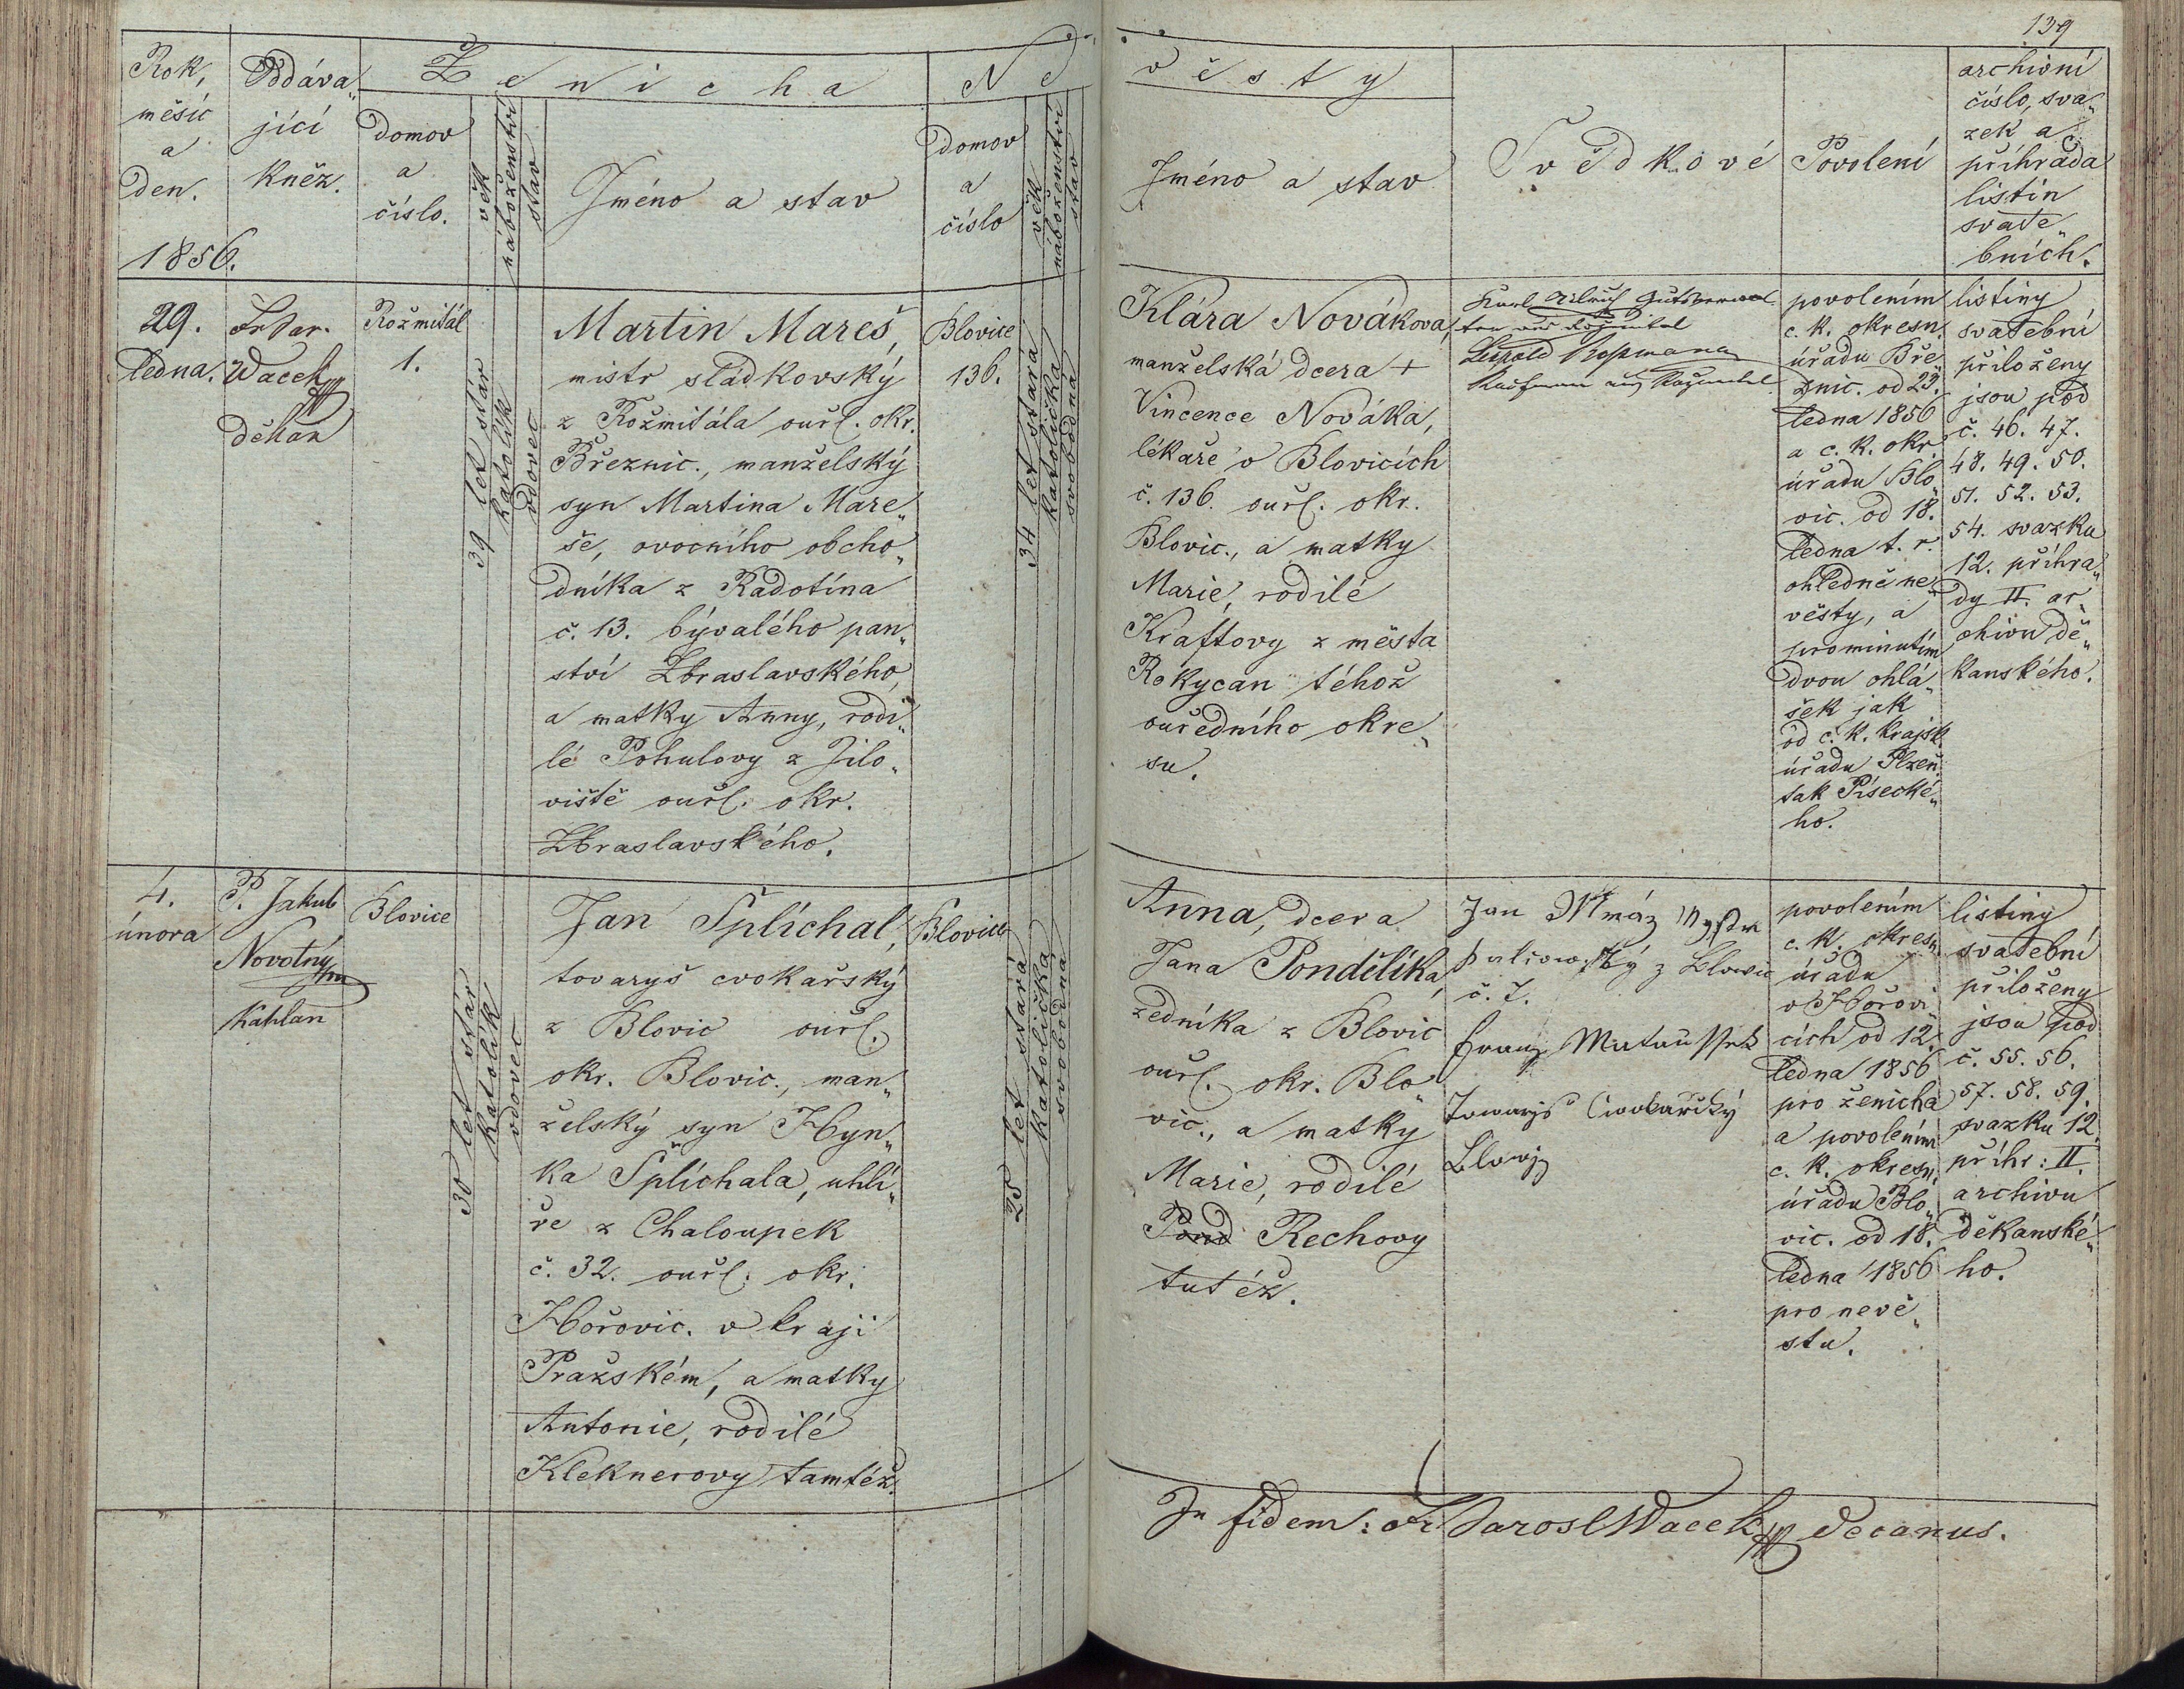 139
Rok,
měsíc
a
den.
1856.
Oddáva„
jící
kněz.
Ženicha
domov
a
číslo.
věk
náboženství
stav
Jméno a stav
Ne
domov
a
číslo
věk
náboženství
stav
věsty
Jméno a stav
Svědkové
Povolení
archivní
číslo, sva„
zek a
příhrada
listin
svate„
bních.
29.
ledna.
Fr Jar.
Wacek
děkan
Rožmitál
1.
39 let stár
katolík
vdovec
Martin Mareš,
mistr sládkovský
z Rožmitála ouřl. okr.
Březnic., manželský
syn Martina Mare„
še, ovocního obcho„
dníka z Radotína
č. 13. bývalého pan„
ství Zbraslavského,
a matky Anny, rodi„
lé Pohulovy z Jílo„
viště ouřl. okr.
Zbraslavského.
Blovice
136.
34 let stará
katolička
svobodná
Klára Nováková,
manželská dcera +
Vincence Nováka,
lékaře v Blovicích
č. 136. ouřl. okr.
Blovic., a matky
Marie, rodilé
Kraftovy z města
Rokycan téhož
ouředního okre„
su.
Karl
Leopold Rossmann
Kaufmann aus
povolením
c. k. okresn.
úřadu Bře„
znic. od 23.
ledna 1856
a c. k. okr.
úřadu Blo„
vic. od 18.
ledna t. r.
ohledně ne„
věsty, a
prominutím
dvou ohlá„
šek jak
od c. k. krajsk.
úřadu Plzeň.
tak Písecké„
ho.
listiny
svatební
přiloženy
jsou pod
č. 46. 47.
48. 49. 50.
51. 52. 53.
54. svazku
12. příhra„
dy II. ar„
chivu dě„
kanského.
4.
února
P. Jakub
Novotný
kaplan
Blovice
30 let stár
katolík
vdovec
Jan Šplíchal,
tovaryš cvokařský
z Blovic ouřl.
okr. Blovic., man„
želský syn Hyn„
ka Šplíchala, uhlí„
ře z Chaloupek
č. 32. ouřl. okr.
Hořovic. v kraji
Pražském, a matky
Antonie, rodilé
Kleknerovy tamtéž.
Blovice
25 let stará
katolička
svobodná
Anna, dcera
Jana Pondělíka,
zedníka z Blovic
ouřl. okr. Blo„
vic., a matky
Marie, rodilé
Pond Rechovy
tutéž.
Jan Mráz
z Blowic
č. 7.
Franz
Towaryš Cwokařský
Blowic
povolením
c. k. okresn.
úřadu
v Hořovi„
cích od 12.
ledna 1856
pro ženicha
a povolením
c. k. okresn.
úřadu Blo„
vic. od 18.
ledna 1856
pro nevě„
stu.
listiny
svatební
přiloženy
jsou pod
č. 55. 56.
57. 58. 59.
svazku 12.
příhr: II.
archivu
děkanské„
ho.
In fidem: Fr. Jarosl Wacek decanus.